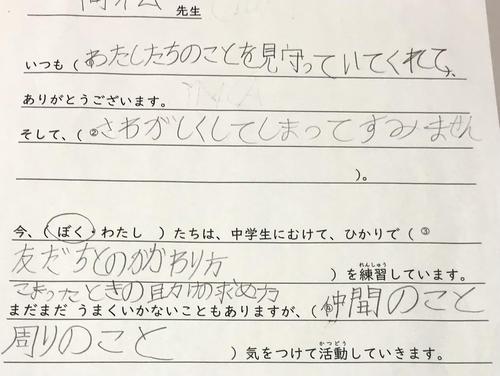 先生
いつも（わたしたちのことを見守っていてくれて、
ありがとうございます。
そして、（②さわがしくしてしまってすみません
）。
今、（ ぼく・わたし ）たちは、中学生にむけて、ひかりで（③
友だちとのかかわり方
）を練習しています。
れんしゅう
こまったときの助けの求め方
まだまだ うまくいかないこともありますが、（④仲間のこと
周りのこと
）気をつけて活動していきます。
かつどう